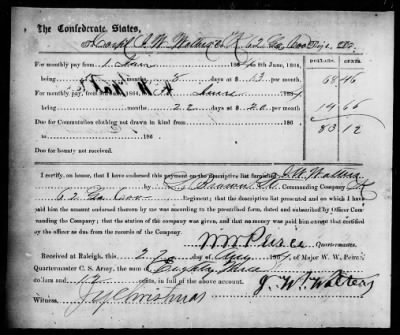 The Confederate States,
To Corpl J. W. Watters Co K 62 Ga Cav Dr.
DOLLARS. CENTS.
For monthly pay from 1 Jany 1864 to 8th June, 1864,
being 5 months 8 days at $ 13 per month. 68 46
For monthly pay, from 8th June 1864, to 30 June 1864
being months 22 days at $ 20 per month. 14 66
Due for Commutation clothing not drawn in kind from 186 83 12
to 186
Due for bounty not received.
I certify, on honor, that I have endorsed this payment on the descriptive list furnished J. W. Watters
by Commanding Company K
62 Ga Cav Regiment; that the descriptive list presented and on which I have
paid him the amount endorsed thereon by was according to the prescribed form, dated and subscribed by Officer Com
manding the Company; that the station of the company was given, and that no money was paid him except that certified
by the officer as due from the records of the Company.
W W Peirce Quartermaster.
Received at Raleigh, this 27 of Aug 1864 of Major W. W. Peirce
Quartermaster C. S. Army, the sum of Eighty Three
dollars and 12 cents, in full of the above account.
J. W. Watters
Witness,